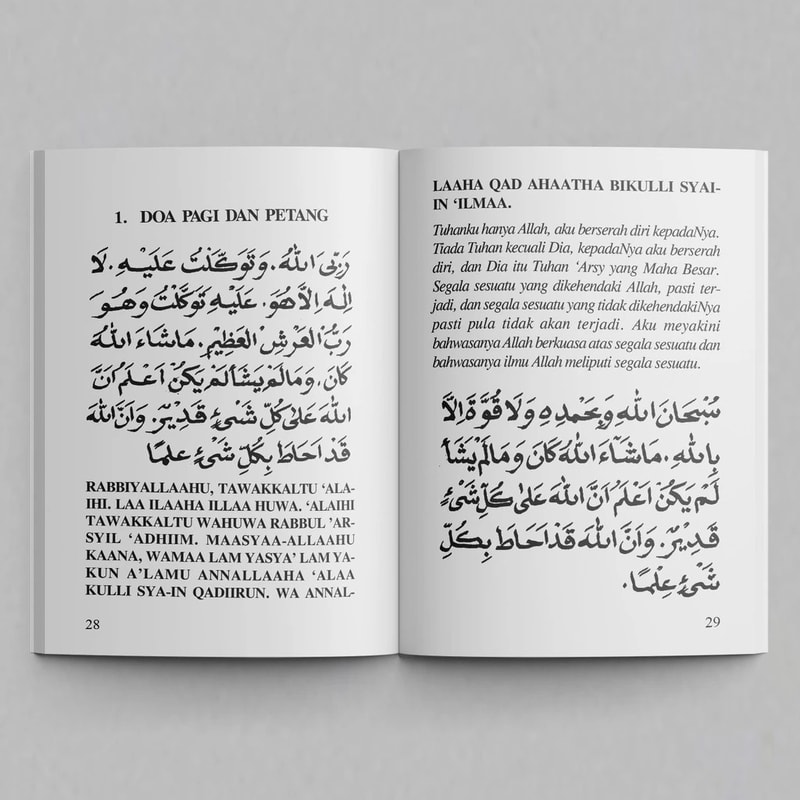 1. DOA PAGI DAN PETANG
رَبِّيَ اللهُ. وَتَوَكَّلْتُ عَلَيْهِ. لَا
إِلٰهَ اِلَّا هُوَ. عَلَيْهِ تَوَكَّلْتُ وَهُوَ
رَبُّ الْعَرْشِ الْعَظِيْمِ. مَاشَاءَ اللهُ
كَانَ، وَمَالَمْ يَشَأْ لَمْ يَكُنْ اَعْلَمُ اَنَّ
اللهَ عَلَى كُلِّ شَيْءٍ قَدِيْرٌ. وَاَنَّ اللهَ
قَدْ اَحَاطَ بِكُلِّ شَيْءٍ عِلْمًا
RABBIYALLAAHU, TAWAKKALTU ‘ALA-
IHI. LAA ILAAHA ILLAA HUWA. ‘ALAIHI
TAWAKKALTU WAHUWA RABBUL ’AR-
SYIL ‘ADHIIM. MAASYAA-ALLAAHU
KAANA, WAMAA LAM YASYA’ LAM YA-
KUN A’LAMU ANNALLAAHA ‘ALAA
KULLI SYA-IN QADIIRUN. WA ANNAL-
28
LAAHA QAD AHAATHA BIKULLI SYAI-
IN ‘ILMAA.
Tuhanku hanya Allah, aku berserah diri kepadaNya.
Tiada Tuhan kecuali Dia, kepadaNya aku berserah
diri, dan Dia itu Tuhan ‘Arsy yang Maha Besar.
Segala sesuatu yang dikehendaki Allah, pasti ter-
jadi, dan segala sesuatu yang tidak dikehendakiNya
pasti pula tidak akan terjadi. Aku meyakini
bahwasanya Allah berkuasa atas segala sesuatu dan
bahwasanya ilmu Allah meliputi segala sesuatu.
سُبْحَانَ اللهِ وَبِحَمْدِهِ وَلَا قُوَّةَ اِلَّا
بِاللهِ. مَاشَاءَ اللهُ كَانَ وَمَالَمْ يَشَأْ
لَمْ يَكُنْ اَعْلَمُ اَنَّ اللهَ عَلَى كُلِّ شَيْءٍ
قَدِيْرٌ. وَاَنَّ اللهَ قَدْ اَحَاطَ بِكُلِّ
شَيْءٍ عِلْمًا.
29